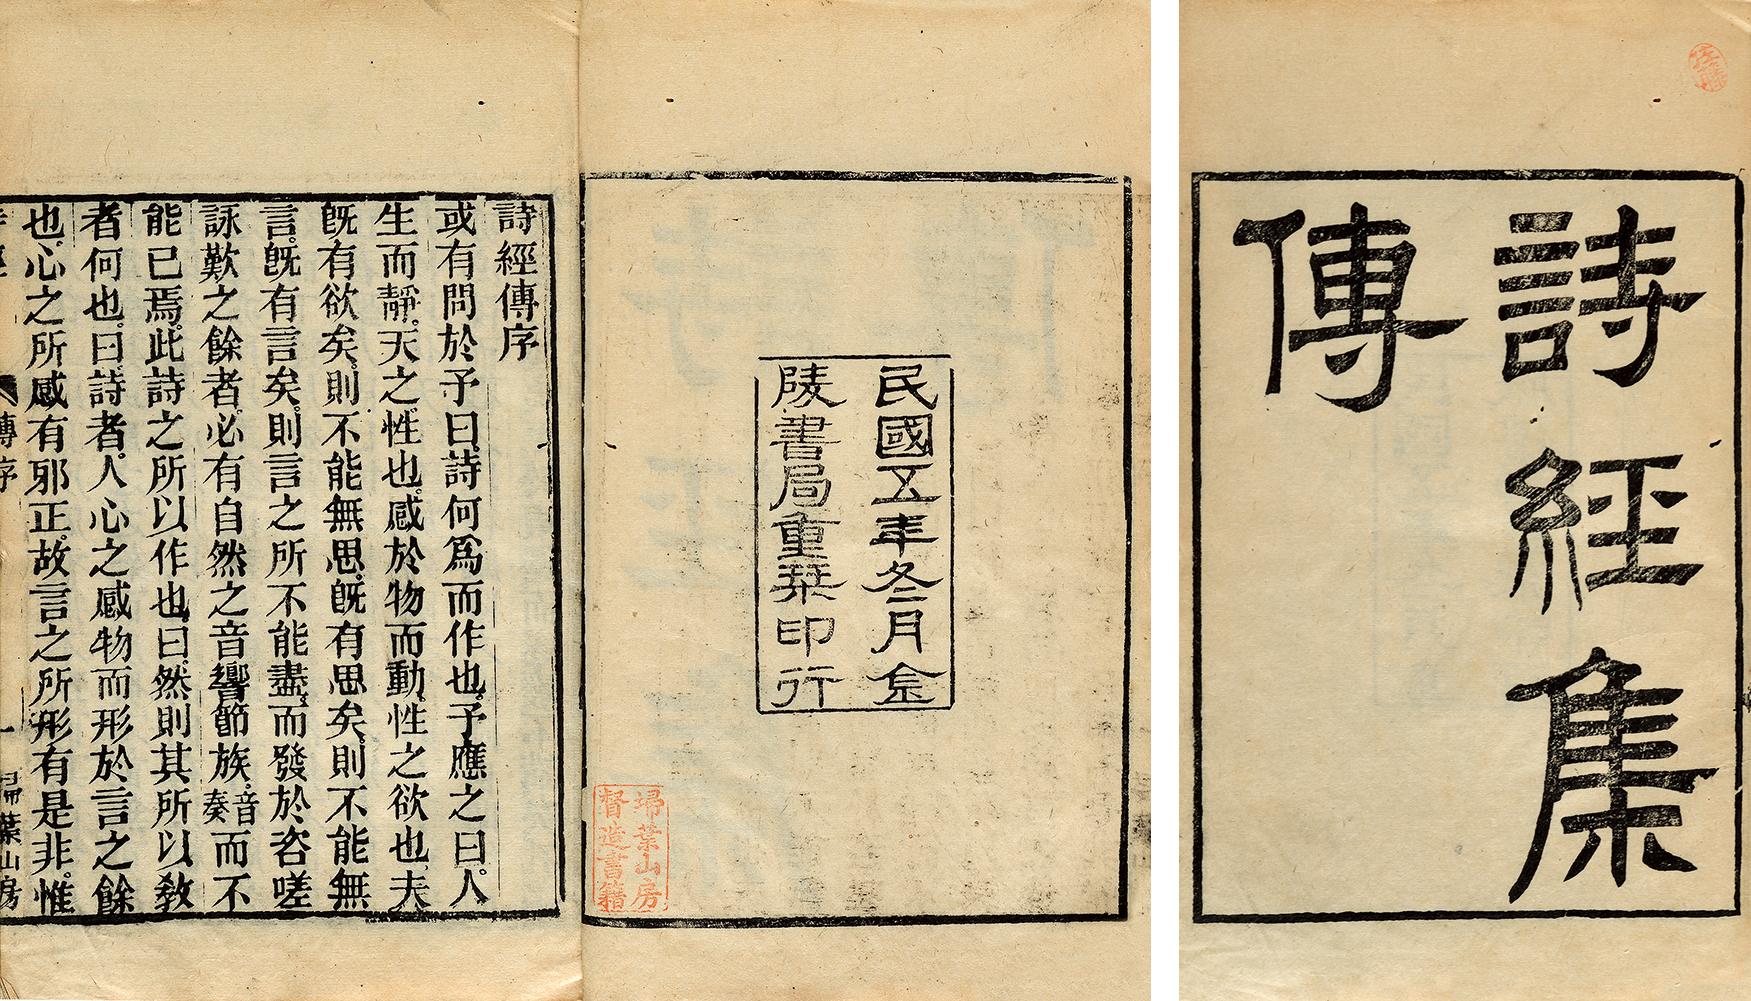 詩經集
傳
民國五年冬月金
陵書局重栞印行
埽葉山房
督造書籍
詩經傳序
或有問於予曰詩何爲而作也予應之曰人
生而靜天之性也感於物而動性之欲也夫
旣有欲矣則不能無思旣有思矣則不能無
言旣有言矣則言之所不能盡而發於咨嗟
詠歎之餘者必有自然之音響節族音奏而不
能已焉此詩之所以作也曰然則其所以敎
者何也曰詩者人心之感物而形於言之餘
也心之所感有邪正故言之所形有是非惟
傳序
一
埽葉山房